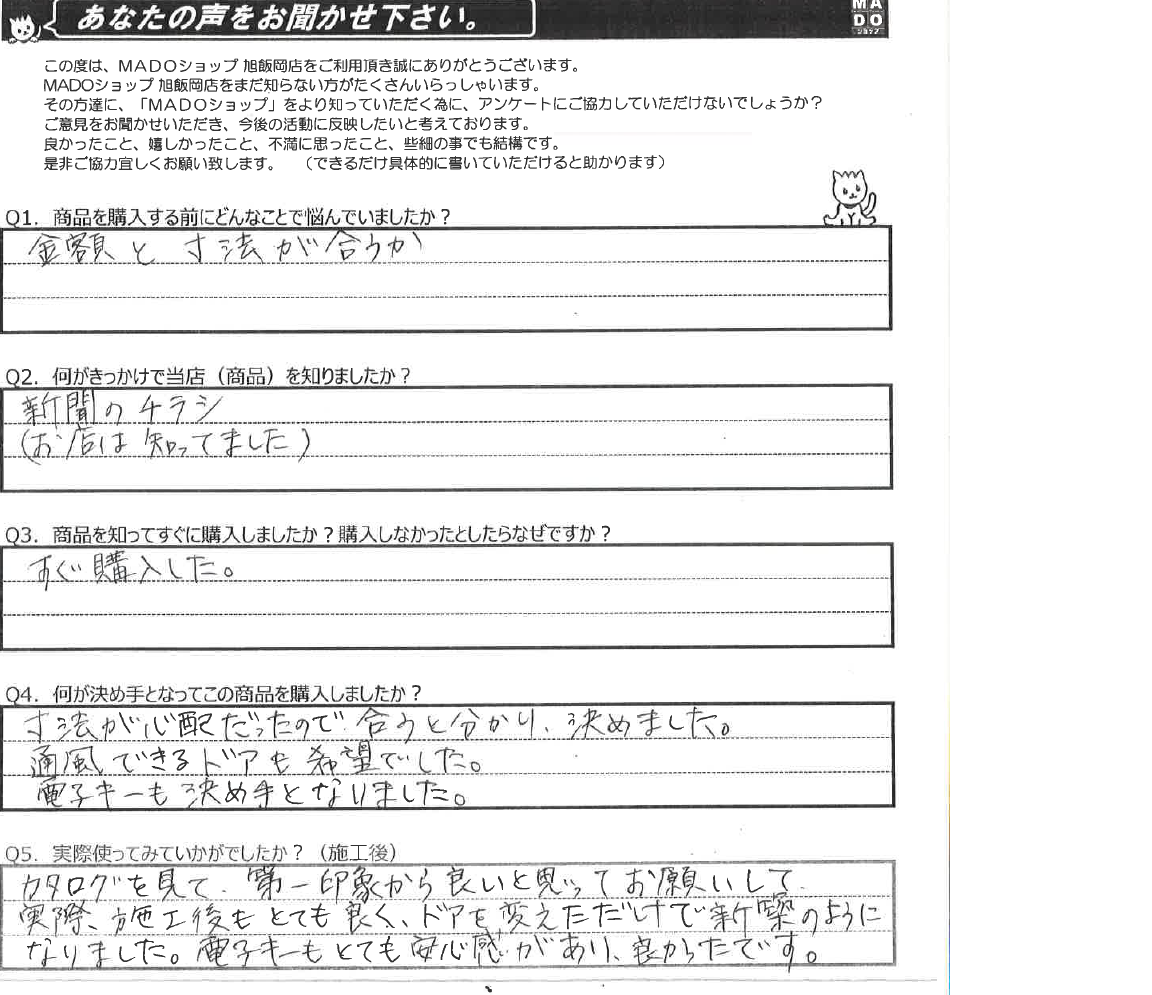 あなたの声をお聞かせ下さい。
MA
DO
ショップ
この度は、ＭＡＤＯショップ 旭飯岡店をご利用頂き誠にありがとうございます。
MADOショップ 旭飯岡店をまだ知らない方がたくさんいらっしゃいます。
その方達に、「ＭＡＤＯショップ」をより知っていただく為に、アンケートにご協力していただけないでしょうか？
ご意見をお聞かせいただき、今後の活動に反映したいと考えております。
良かったこと、嬉しかったこと、不満に思ったこと、些細の事でも結構です。
是非ご協力宜しくお願い致します。　（できるだけ具体的に書いていただけると助かります）
Q1. 商品を購入する前にどんなことで悩んでいましたか？
金額と寸法が合うか
Q2. 何がきっかけで当店（商品）を知りましたか？
新聞のチラシ
(お店は知ってました)
Q3. 商品を知ってすぐに購入しましたか？購入しなかったとしたらなぜですか？
すぐ購入した。
Q4. 何が決め手となってこの商品を購入しましたか？
寸法が心配だったので合うと分かり、決めました。
通風できるドアも希望でした。
電子キーも決め手となりました。
Q5. 実際使ってみていかがでしたか？（施工後）
カタログを見て、第一印象から良いと思ってお願いして
実際、施工後もとても良く、ドアを変えただけで新築のように
なりました。電子キーもとても安心感があり、良かったです。